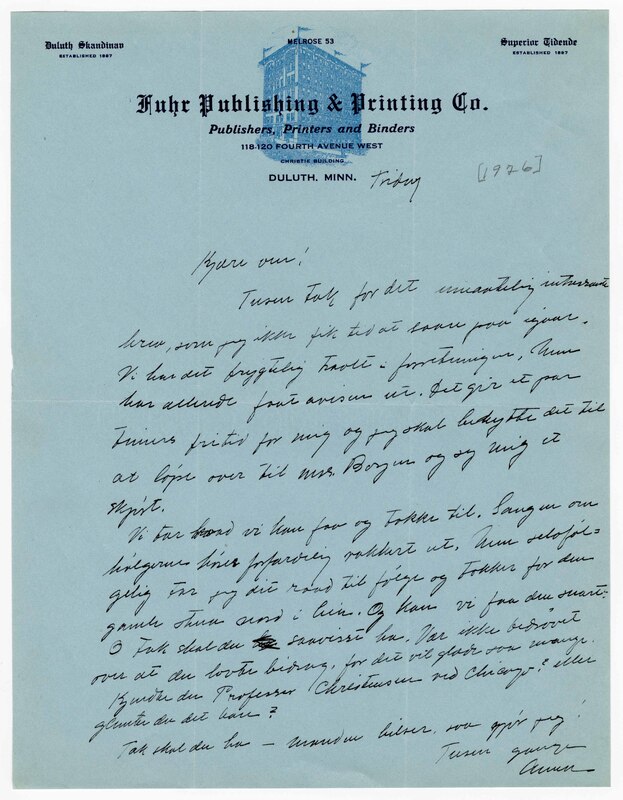 Duluth Skandinav
ESTABLISHED 1887
MELROSE 53
Superior Tidende
ESTABLISHED 1887
Fuhr Publishing & Printing Co.
Publishers, Printers and Binders
118-120 FOURTH AVENUE WEST
CHRISTIE BUILDING
DULUTH, MINN.
[1926]
Kjære
Tusen tak for det interessante
brev, som jeg ikke fik tid at svare paa igaar.
Vi har det frygtelig travlt i forretningen. Men
har allerede faat avisen ut. Det gir et par
timers fritid for mig og jeg skal benytte det til
at løpe over til mrs. Borgen og sy mig et
skjørt.
Vi tar hvad vi kan faa og takke til. Sangen om
bølgerne høres forfærdelig vakkert ut. Men selvføl-
gelig tar jeg dit raad til følge og takker for den
gamle nord i lien. Og kan vi faa den snart-
O tak skal du saavisst ha. Vær ikke bedrøvet
over at du lovte bidrag, for det vil glæde saa mange.
Kjendte du Professor Christensen ved Chicago? eller
glemte du det bare?
Tak skal du ha – hilser, saa gjør jeg!
Tusen gange